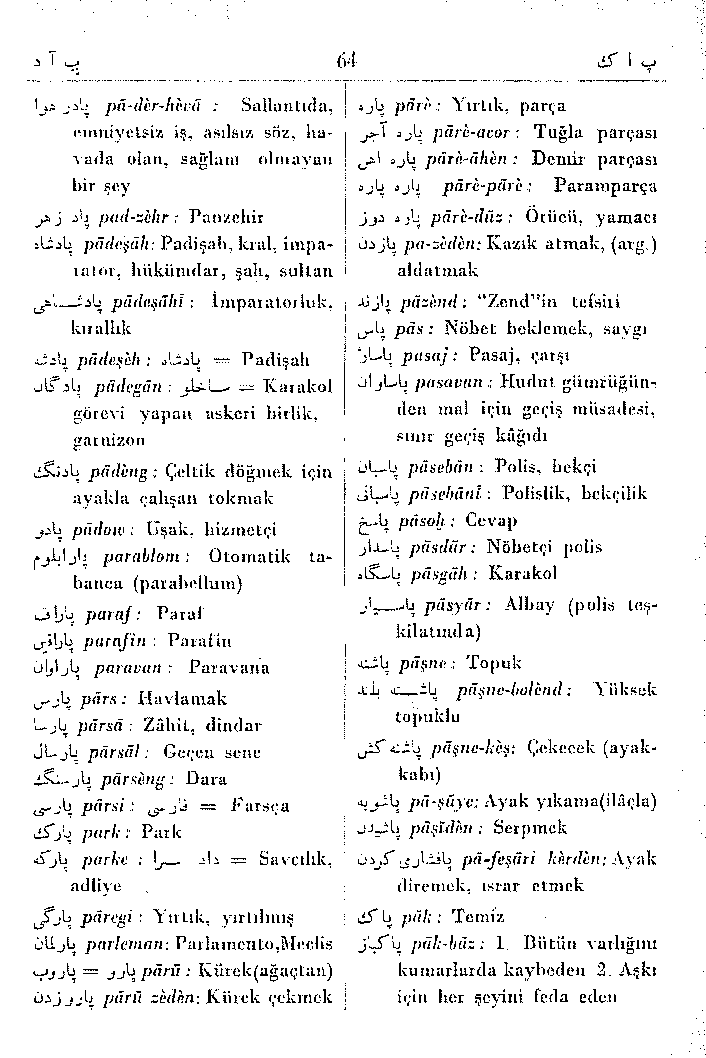 پ آ د 64 پ ا ک
پادر هوا pā-dèr-hèvā : Sallantıda,
emniyetsiz iş, asılsız söz, ha-
vada olan, sağlam olmayan
bir şey
پاد زهر pad-zèhr : Panzehir
پادشاه pādeşāh: Padişah, kral, impa-
rator, hükümdar, şah, sultan
پادشـاهی pādeşāhî : İmparatorluk,
kırallık
پادشه pādeşèh : پادشاه = Padişah
پادگان pādegān : ساخلو = Karakol
görevi yapan askeri birlik,
garnizon
پادنگ pādèng : Çeltik döğmek için
ayakla çalışan tokmak
پادو pādow : Uşak, hizmetçi
پارابلوم parablom : Otomatik ta-
banca (parabellum)
پاراف paraf : Paraf
پارافین parafin : Parafin
پاراوان paravan : Paravana
پارس pārs : Havlamak
پارسا pārsā : Zâhit, dindar
پارسال pārsāl : Geçen sene
پارسنگ pārsèng : Dara
پارسی pārsi : فارسی = Farsça
پارک park : Park
پارکه parke : داد سرا = Savcılık,
adliye
پارگی pāregi : Yırtık, yırtılmış
پارلمان parleman: Parlamento,Meclis
پاروب = پارو pārū : Kürek(ağaçtan)
پارو زدن pārū zèdèn: Kürek çekmek
پاره pārè : Yırtık, parça
پاره آجر pārè-acor : Tuğla parçası
پاره آهن pārè-āhèn : Demir parçası
پاره پاره pārè-pārè : Paramparça
پاره دوز pārè-dūz : Örücü, yamacı
پازدن pa-zèdèn: Kazık atmak, (arg.)
aldatmak
پازند pāzènd : "Zend"in tefsiri
پاس pās : Nöbet beklemek, saygı
پاساژ pasaj : Pasaj, çarşı
پاساوان pasavan : Hudut gümrüğün-
den mal için geçiş müsadesi,
sınır geçiş kâğıdı
پاسبان pāsebān : Polis, bekçi
پاسبانی pāsebānî : Polislik, bekçilik
پاسخ pāsoḫ : Cevap
پاسدار pāsdār : Nöbetçi polis
پاسگاه pāsgāh : Karakol
پاسـیار pāsyār : Albay (polis teş-
kilatında)
پاشنه pāşne : Topuk
پاشنـه بلند pāşne-bolènd : Yüksek
topuklu
پاشنه کش pāşne-kèş: Çekecek (ayak-
kabı)
پاشویه pā-şūye: Ayak yıkama(ilâçla)
پاشیدن pāşīdèn : Serpmek
پافشاری کردن pā-feşāri kèrdèn: Ayak
diremek, ısrar etmek
پاک pāk : Temiz
پاکباز pāk-bāz : 1. Bütün varlığını
kumarlarda kaybeden 2. Aşkı
için her şeyini feda eden